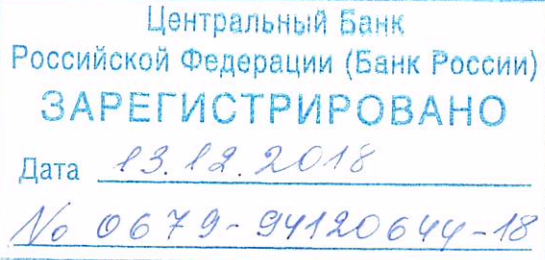 Центральный Банк
Российской Федерации (Банк России)
ЗАРЕГИСТРИРОВАНО
Дата 13.12.2018
№ 0679-94120644-18